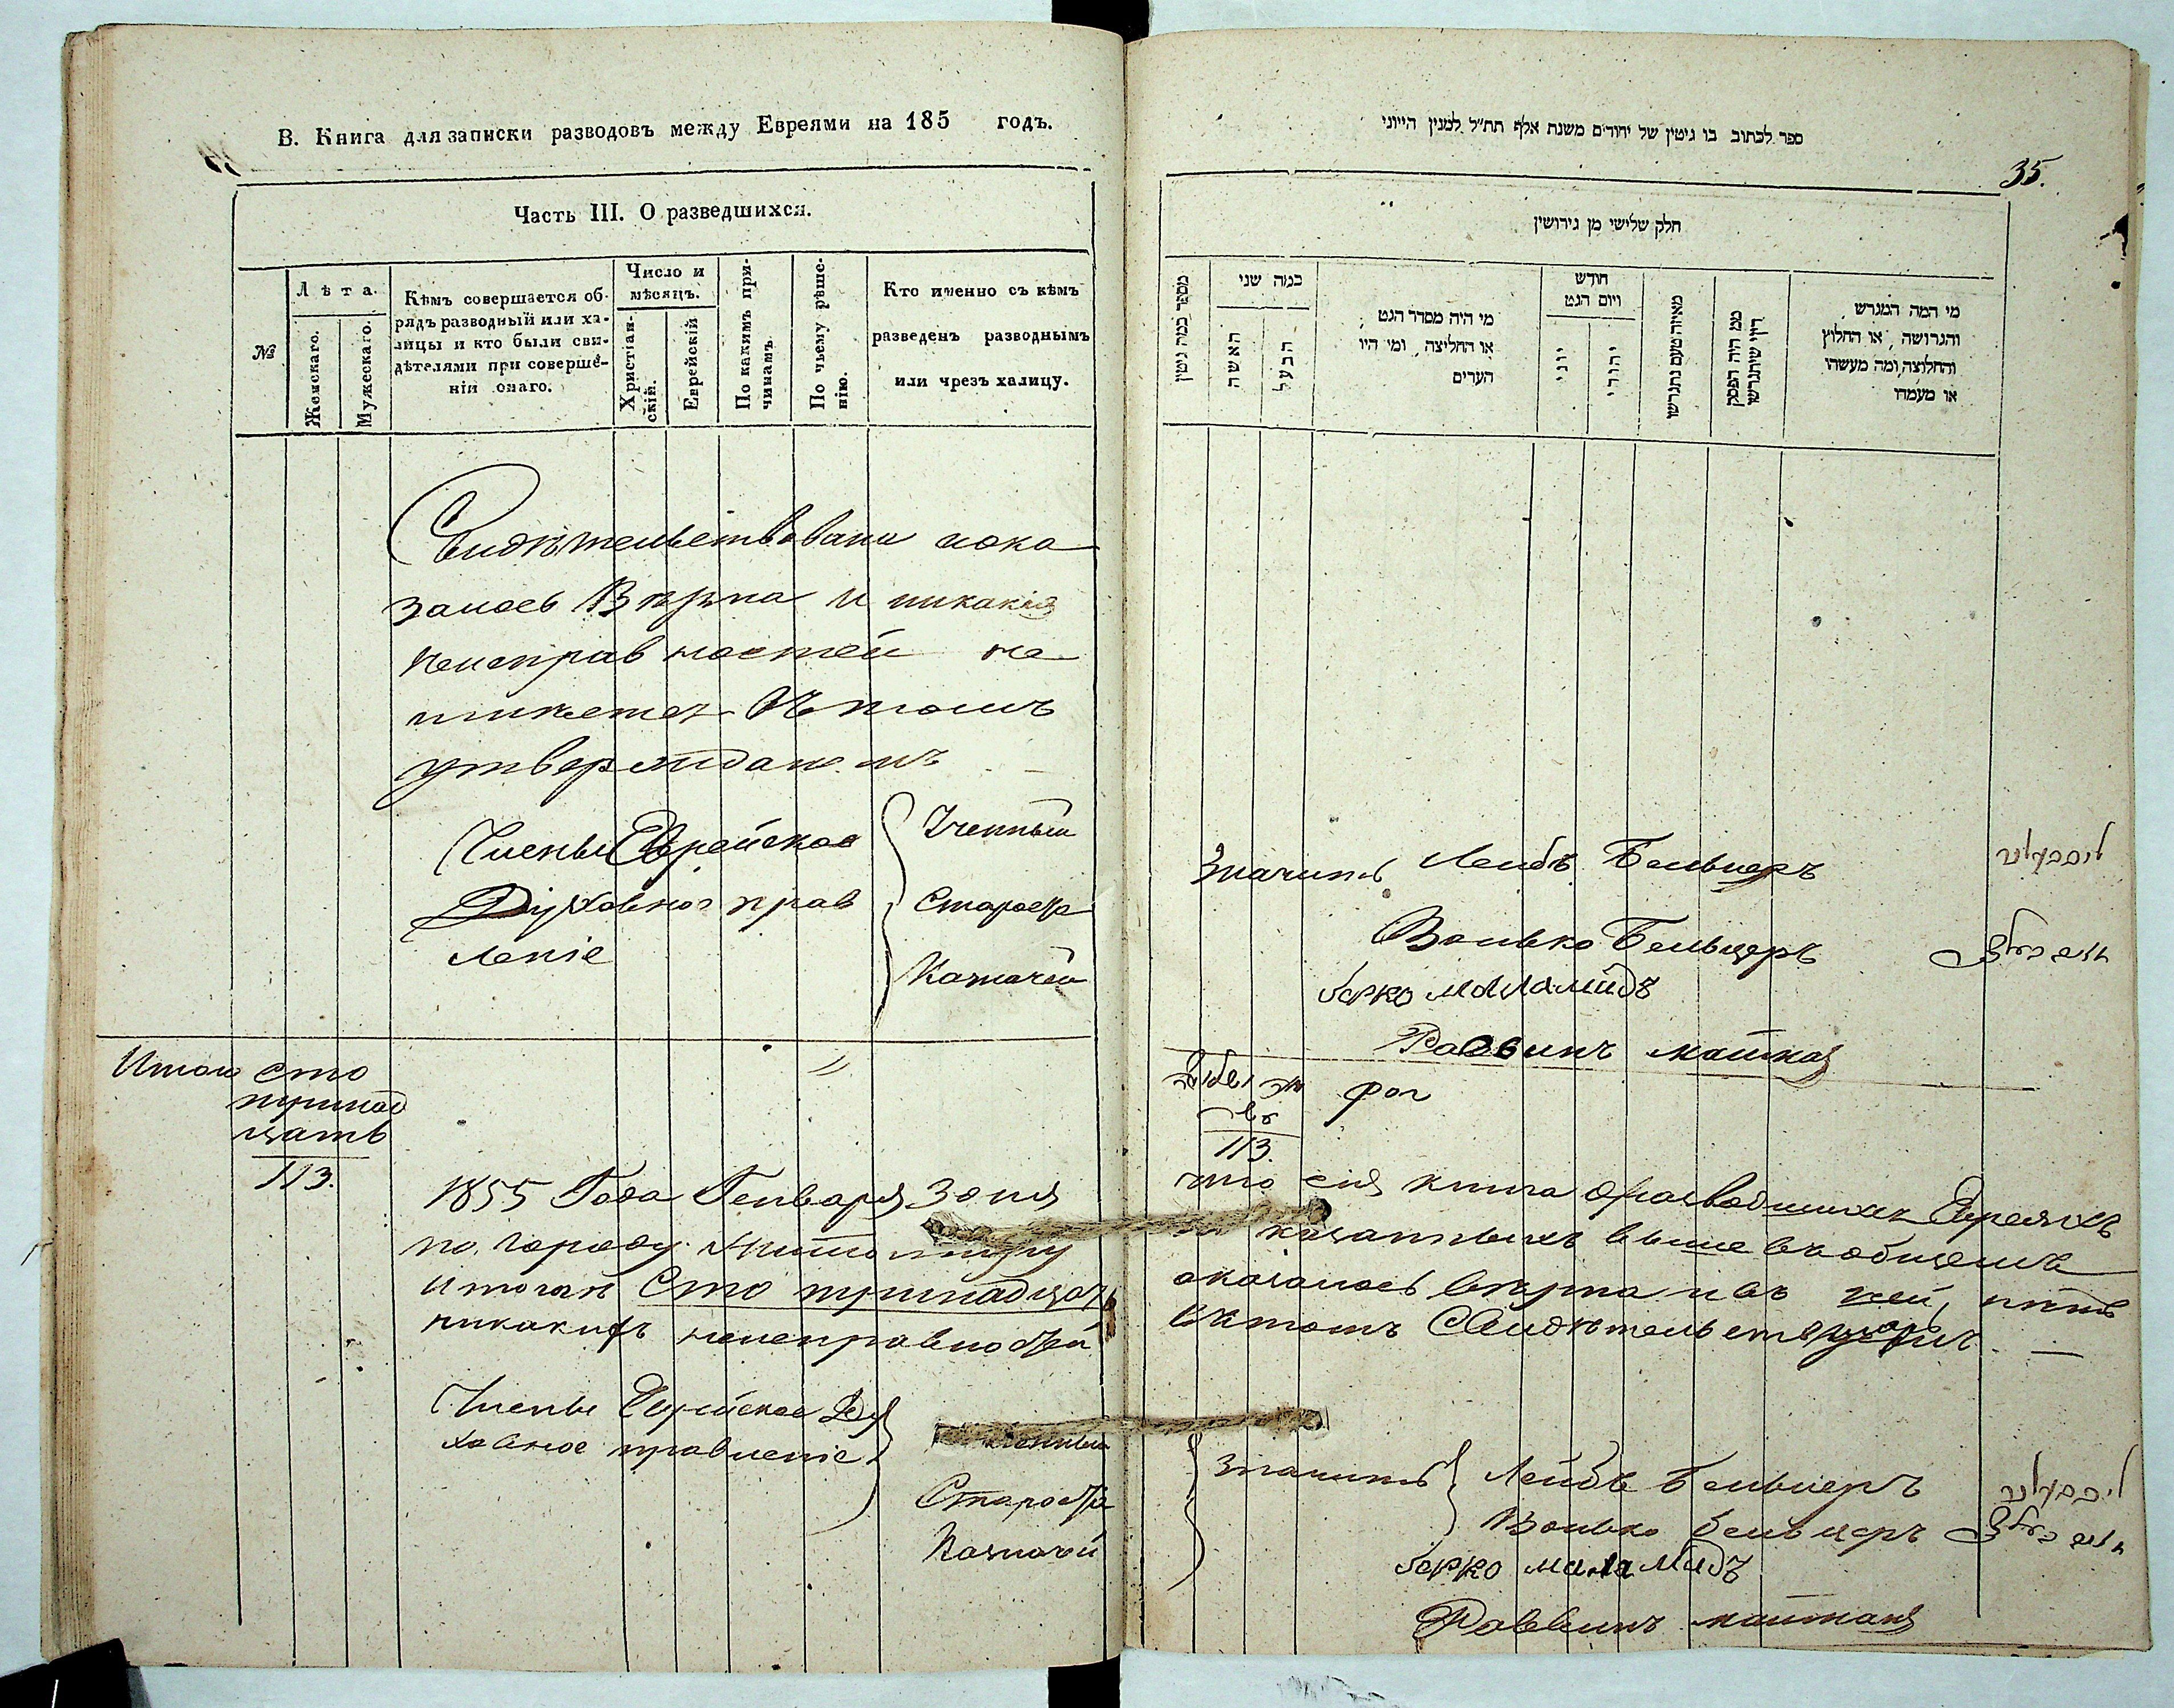 В. Книга для записки разводовъ между Евреями на 185 годъ.
Часть III. О разведшихся.
№
Лѣта.
Женскаго.
Мужескаго.
Кѣмъ совершается об-
рядъ разводный или ха-
лицы и кто были сви-
дѣтелями при соверше-
ніи онаго.
Число и
мѣсяцъ.
Христіан-
скій.
Еврейскій
По какимъ при-
чинамъ.
По чьему рѣше-
нію.
Кто именно съ кѣмъ
разведенъ разводнымъ
или чрезъ халицу.
Свидѣтельствована пока
залось Вѣрна и никакия
неисправностей не
имѣется въ томъ
утверждаемъ
Члены Еврейское
Духовное прав
леніе
Ученный
Староста
Казначей
Итого сто
тринад
цать
113.
1855 Года Генваря 3 дня
по городу Житомиру
итоган Сто тринадцать
никакихъ неисправностей
Члены Еврейское Ду
ховное правленіе
Староста
Казначей
ספר לכתוב בו גיטין של יהודים משנת אלף תת״ל למנין היוני
35.
חלק שלישי מן גירושין
מספר כמה גיטין
כמה שני
האשה
הבעל
מי היה מסדר הגט
או החליצה, ומי היו
העדים
חודש
ויום הגט
יוני
יהודי
מאיזה טעם נתגרשו
ממי היה הפסק
דין שיתגרשו
מי המה המגרש
והגרושה, או החלוץ
והחלוצה, ומה מעשהו
או מעמדו
Значитъ Лейбъ Бельцеръ
Волько Бельцеръ
берко маламидъ
Раввинъ
113.
что сия книга о разводшихся Евреяхъ
показанныхъ выше въ общемъ
оказалось вѣрна и въ ней, нѣтъ
въ томъ Свидѣтельствуемъ
Значитъ Лейбъ Бельцеръ
Волько бельцеръ
берко маламидъ
Раввинъ